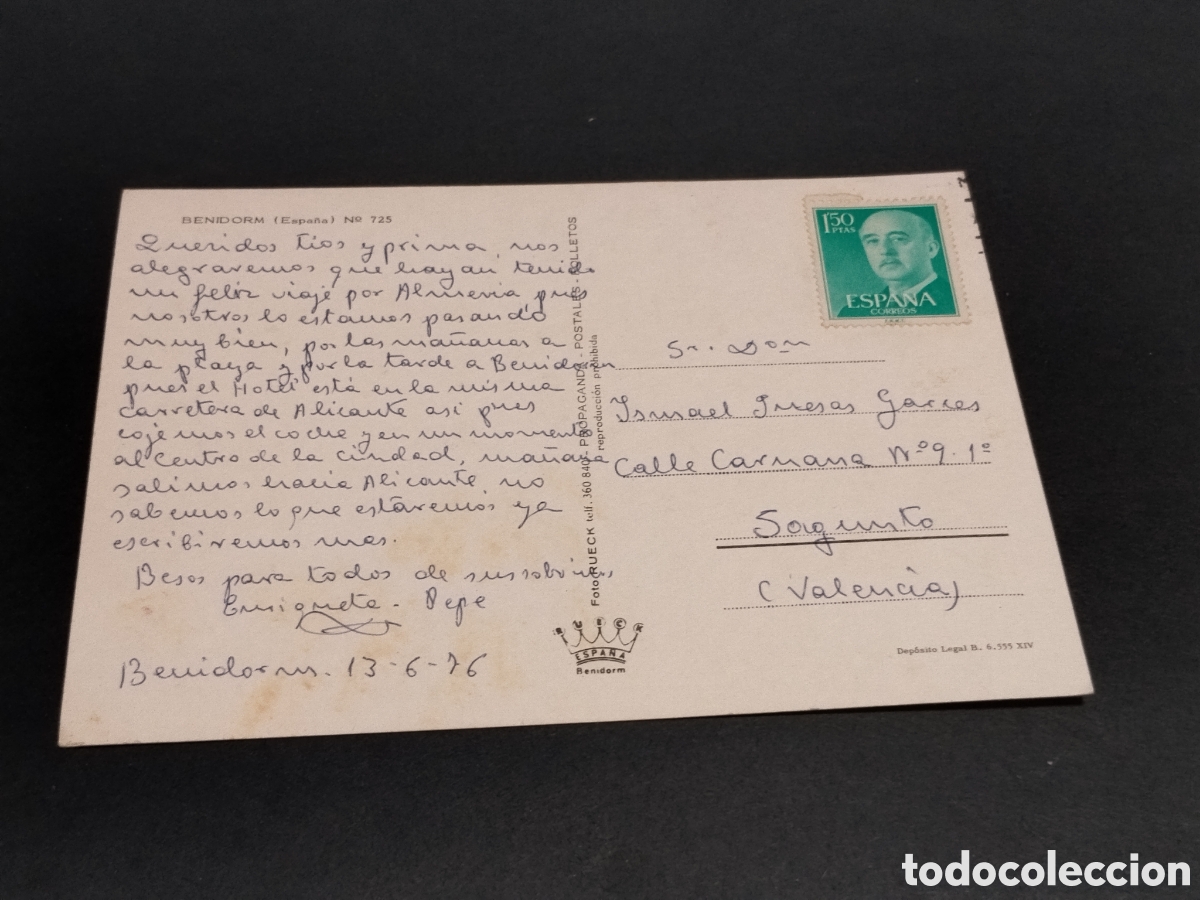 BENIDORM (España) Nº 725
Queridos tios y prima, nos
alegraremos que hayan tenido
un feliz viaje por Almeria pues
nosotros lo estamos pasando
muy bien, por las mañanas a
la playa y por la tarde a Benidorm
pues el Hotel está en la misma
carretera de Alicante asi pues
cojemos el coche y en un momento
al centro de la ciudad, mañana
salimos hacia Alicante, no
sabemos lo que estáremos ya
escribiremos mas.
Besos para todos de sus sobrinos
Enriqueta - Pepe
Benidorm. 13-6-76
Foto RUECK telf. 360 840 - PROPAGANDA - POSTALES - FOLLETOS
reproducción prohibida
RUECK
ESPAÑA
Benidorm
1'50
PTAS
ESPAÑA
CORREOS
Sr. Don
Ismael Garces
Calle Nº 9. 1º
Sagunto
(Valencia)
Depósito Legal B. 6.555 XIV
todocoleccion